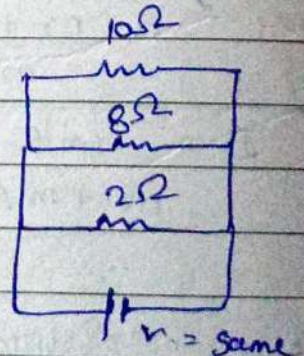 10Ω
8Ω
2Ω
v = same